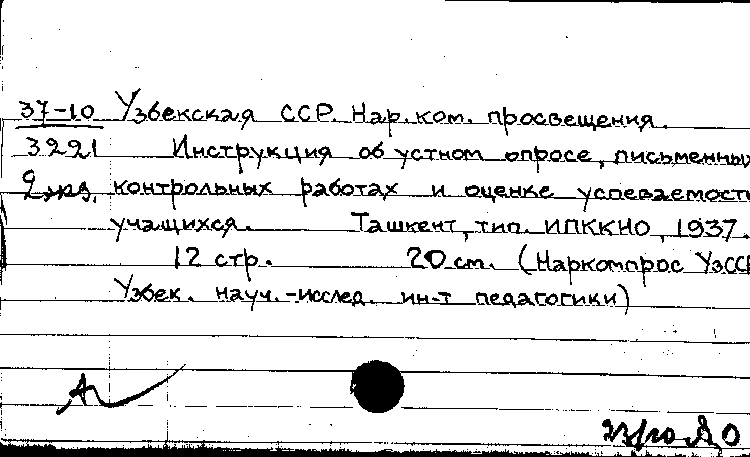 37-10 Узбекская ССР. Нар.ком. просвещения.
3221 Инструкция об устном опросе, письменных
2 экз. контрольных работах и оценке успеваемости
учащихся. Ташкент, тип. ИПККНО, 1937.
12 стр. 20 см. (Наркомпрос УзССР
Узбек. науч.-исслед. ин-т педагогики)